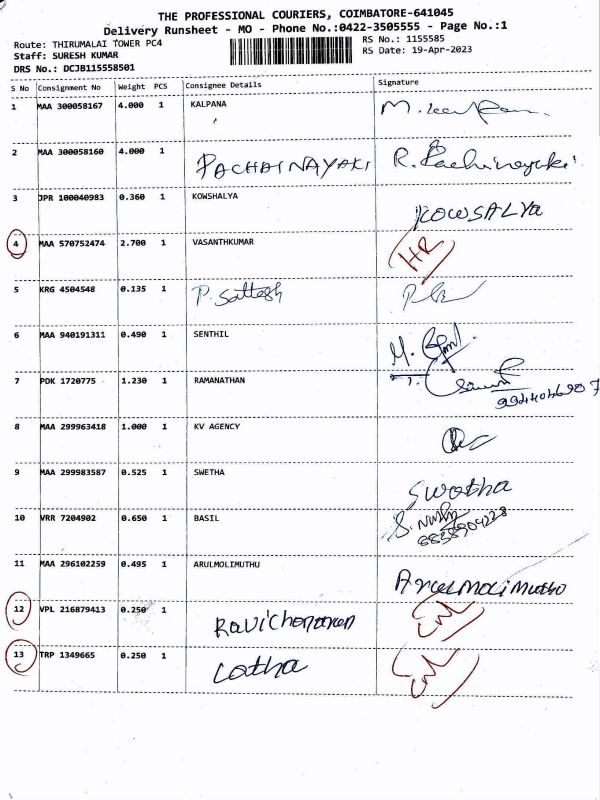 THE PROFESSIONAL COURIERS, COIMBATORE-641045
Delivery Runsheet - MO - Phone No.:0422-3505555 - Page No.:1
Route: THIRUMALAI TOWER PC4 RS No.: 1155585
Staff: SURESH KUMAR RS Date: 19-Apr-2023
DRS No.: DCJB115558501
S No Consignment No Weight PCS Consignee Details Signature
1 MAA 300058167 4.000 1 KALPANA
2 MAA 300058160 4.000 1 PACHAINAYAKI R. Pachinayaki
3 JPR 100040983 0.360 1 KOWSHALYA KOWSALYA
4 MAA 570752474 2.700 1 VASANTHKUMAR HR
5 KRG 4504548 0.135 1 P. Sattesh
6 MAA 940191311 0.490 1 SENTHIL
7 PDK 1720775 1.230 1 RAMANATHAN
8 MAA 299963418 1.000 1 KV AGENCY
9 MAA 299983587 0.525 1 SWETHA Swetha
10 VRR 7204902 0.650 1 BASIL
11 MAA 296102259 0.495 1 ARULMOLIMUTHU Arulmolimutho
12 VPL 216879413 0.250 1 Ravichandran
13 TRP 1349665 0.250 1 Latha